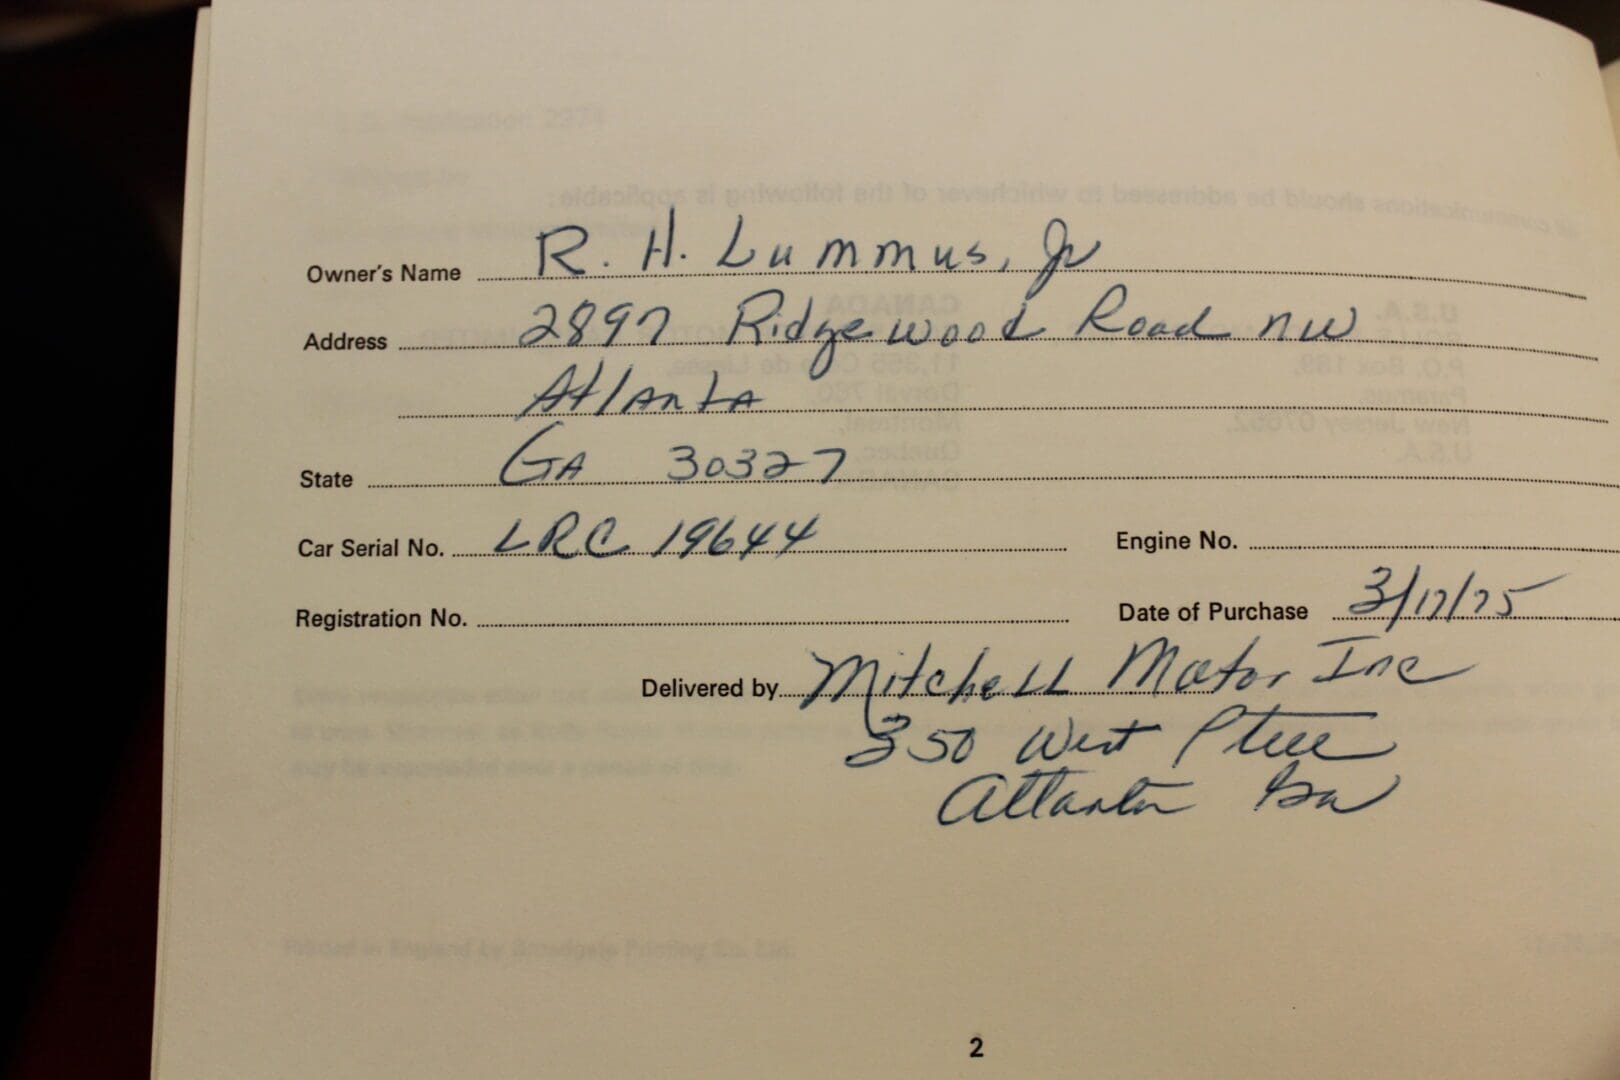 Owner's Name R. H. Lummus, Jr
Address 2897 Ridgewood Road NW
Atlanta
State GA 30327
Car Serial No. LRC 19644 Engine No.
Registration No. Date of Purchase 3/17/75
Delivered by Mitchell Motor Inc
350 West Ptree
Atlanta Ga
Printed in England by Broadgate Printing Co. Ltd.
2